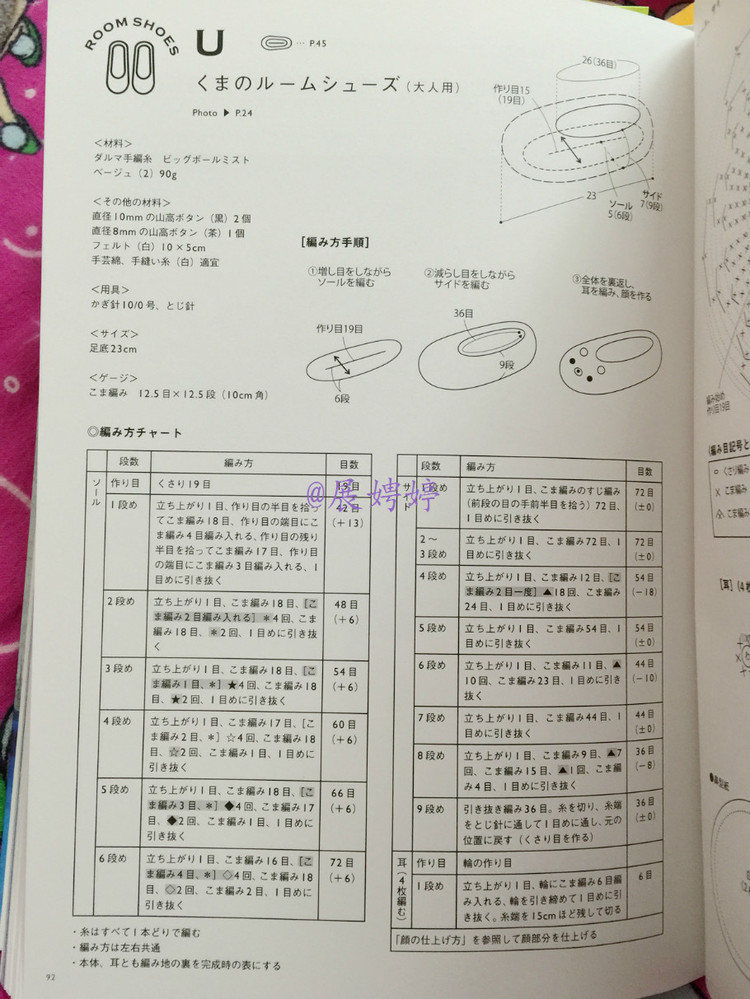 ROOM SHOES
U
… P.45
くまのルームシューズ(大人用)
Photo ▶ P.24
<材料>
ダルマ手編糸 ビッグボールミスト
ベージュ(2)90g
<その他の材料>
直径10mmの山高ボタン(黒)2個
直径8mmの山高ボタン(茶)1個
フェルト(白)10×5cm
手芸綿、手縫い糸(白)適宜
<用具>
かぎ針10/0号、とじ針
<サイズ>
足底23cm
<ゲージ>
こま編み 12.5目×12.5段(10cm角)
26(36目)
作り目15
(19目)
23
ソール
5(6段)
サイド
7(9段)
[編み方手順]
①増し目をしながら
ソールを編む
作り目19目
6段
②減らし目をしながら
サイドを編む
36目
9段
③全体を裏返し、
耳を編み、顔を作る
◎編み方チャート
段数 編み方 目数
ソール
作り目 くさり19目 19目
1段め 立ち上がり1目、作り目の半目を拾っ
てこま編み18目、作り目の端目にこ
ま編み4目編み入れる、作り目の残り
半目を拾ってこま編み17目、作り目
の端目にこま編み3目編み入れる、1
目めに引き抜く
42目
(+13)
2段め 立ち上がり1目、こま編み18目、[こ
ま編み2目編み入れる]*4回、こま編
み18目、*2回、1目めに引き抜
く
48目
(+6)
3段め 立ち上がり1目、こま編み18目、[こ
ま編み1目、*]★4回、こま編み18
目、★2回、1目めに引き抜く
54目
(+6)
4段め 立ち上がり1目、こま編み17目、[こ
ま編み2目、*]☆4回、こま編み18
目、☆2回、こま編み1目、1目めに
引き抜く
60目
(+6)
5段め 立ち上がり1目、こま編み18目、[こ
ま編み3目、*]◆4回、こま編み17
目、◆2回、こま編み1目、1目めに
引き抜く
66目
(+6)
6段め 立ち上がり1目、こま編み16目、[こ
ま編み4目、*]◇4回、こま編み18
目、◇2回、こま編み2目、1目めに
引き抜く
72目
(+6)
段数 編み方 目数
サイド
1段め 立ち上がり1目、こま編みのすじ編み
(前段の目の手前半目を拾う)72目、
1目めに引き抜く
72目
(±0)
2～
3段め
立ち上がり1目、こま編み72目、1目
めに引き抜く
72目
(±0)
4段め 立ち上がり1目、こま編み12目、[こ
ま編み2目一度]▲18回、こま編み
24目、1目めに引き抜く
54目
(−18)
5段め 立ち上がり1目、こま編み54目、1目
めに引き抜く
54目
(±0)
6段め 立ち上がり1目、こま編み11目、▲
10回、こま編み23目、1目めに引き
抜く
44目
(−10)
7段め 立ち上がり1目、こま編み44目、1
目めに引き抜く
44目
(±0)
8段め 立ち上がり1目、こま編み9目、▲7
回、こま編み15目、▲1回、こま編
み4目、1目めに引き抜く
36目
(−8)
9段め 引き抜き編み36目。糸を切り、糸端
をとじ針に通して1目めに通し、元の
位置に戻す(くさり目を作る)
36目
(±0)
耳(4枚編む)
作り目 輪の作り目
1段め 立ち上がり1目、輪にこま編み6目編
み入れる、輪を引き締めて1目めに引
き抜く。糸端を15cmほど残して切る
6目
「顔の仕上げ方」を参照して顔部分を仕上げる
・糸はすべて1本どりで編む
・編み方は左右共通
・本体、耳とも編み地の裏を完成時の表にする
92
@展娉婷
編み始め
作り目19目
(編み目記号と
くさり編み
× こま編み
こま編み
[耳](4枚